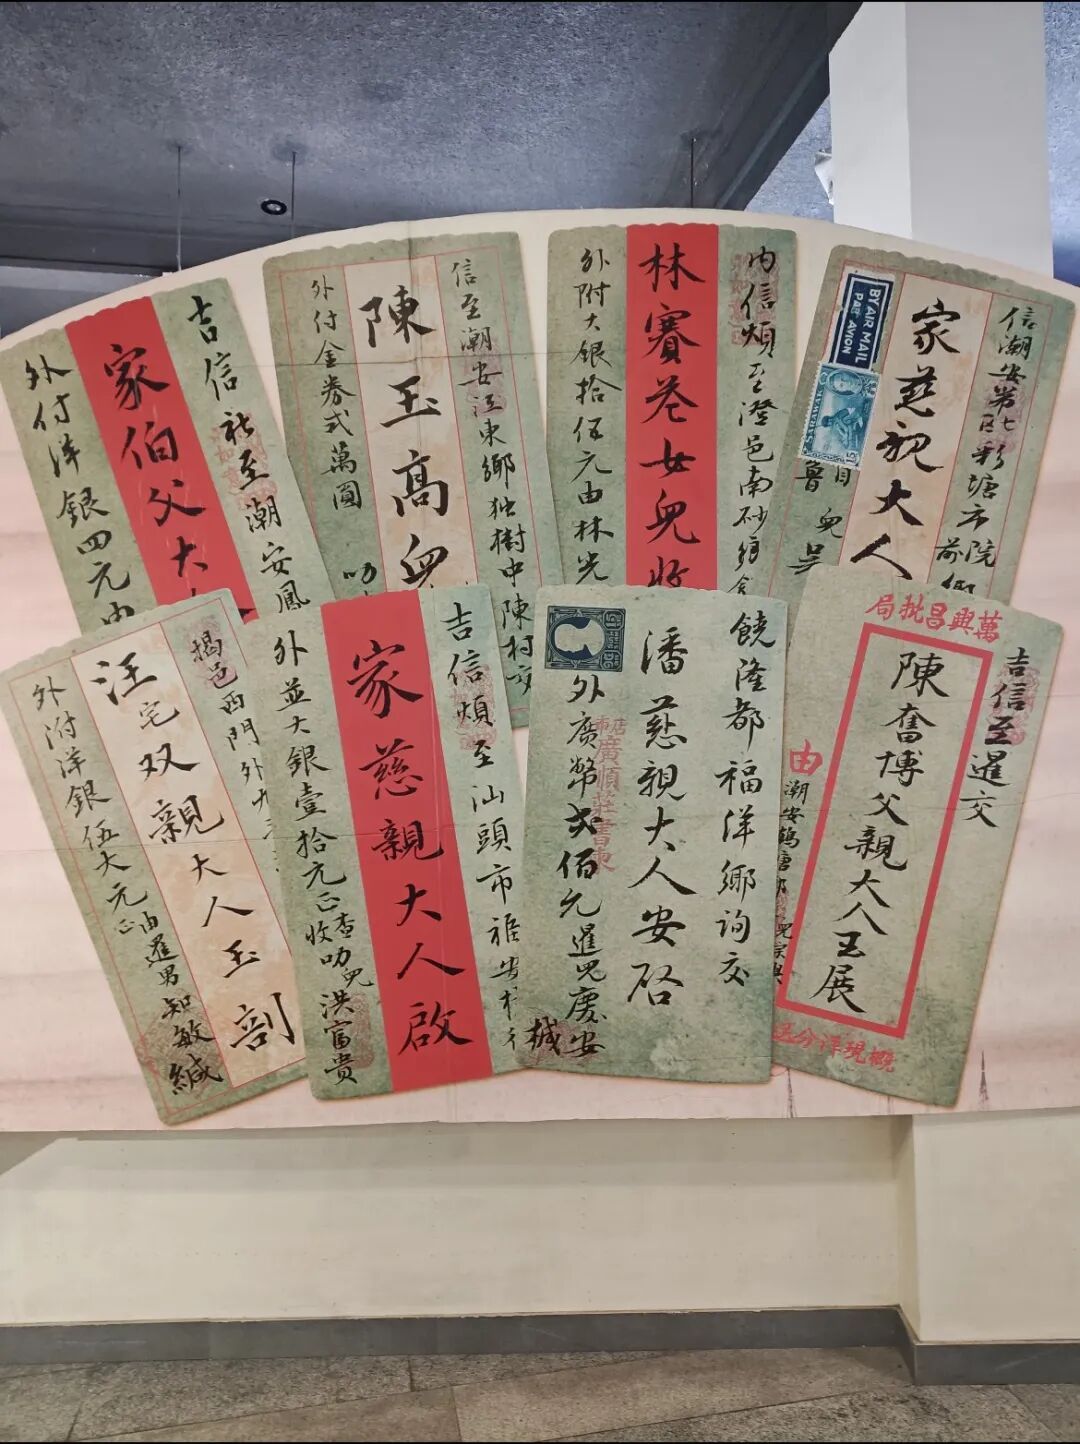 吉信社至潮安鳳
家伯父大
外付洋銀四元由
信至潮安江東鄉独樹中陳村交
陳玉高
外付金券弍萬圓
内信煩至澄邑南砂鄉
林賽巷女兒收
外附大銀拾伍元由林光
信潮安第七區彩塘市院前鄉
家慈親大人
BY AIR MAIL
PAR AVION
SARAWAK
15c
揭邑西門外
汪宅双親大人玉剖
外附洋銀伍大元正
由暹男知敏緘
吉信煩至汕頭市
家慈親大人啟
外並大銀壹拾元正查收叻兒洪富貴
饒隆都福洋鄉詢交
潘慈親大人安啓
外廣幣弍佰元暹兒慶安
廣順莊書柬
萬興昌批局
吉信至暹交
陳奮博父親大人玉展
由
潮安鶴塘
概現洋分